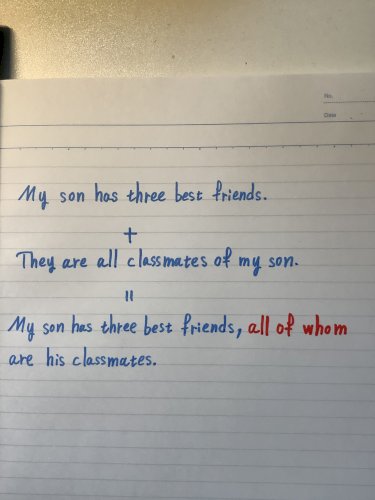 No.
Date
My son has three best friends.
+
They are all classmates of my son.
=
My son has three best friends, all of whom
are his classmates.